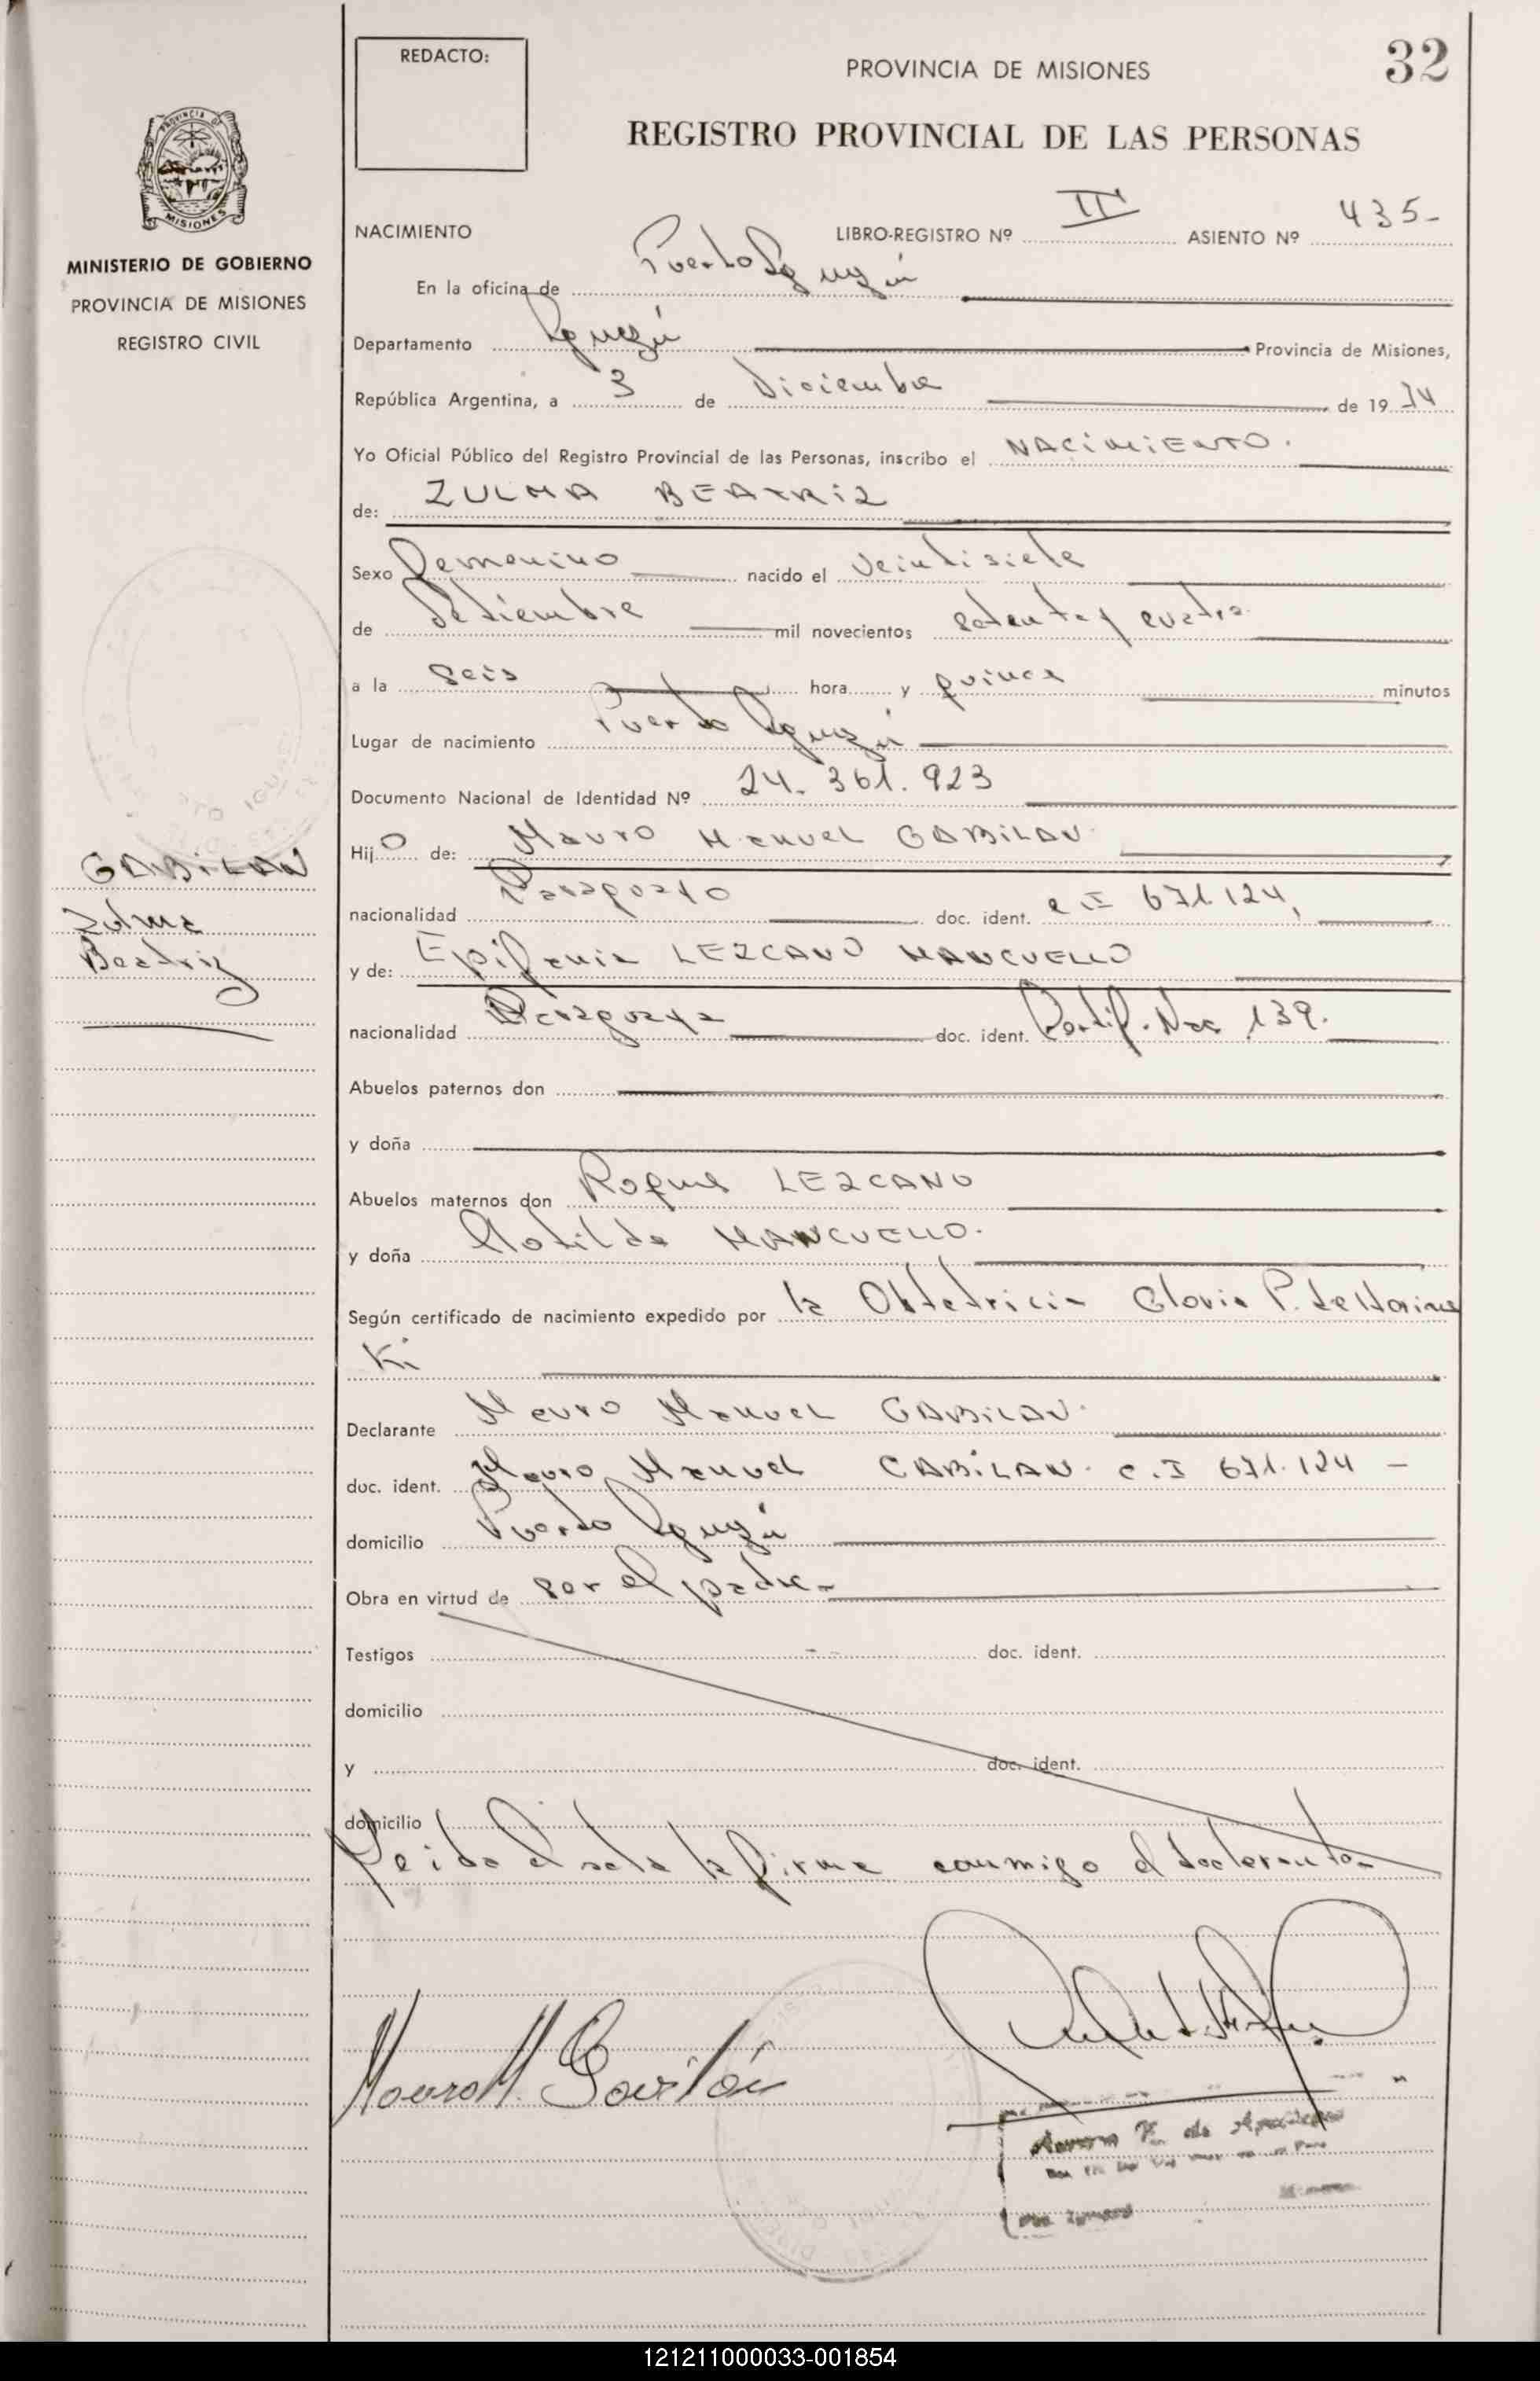 32
REDACTO:
PROVINCIA DE MISIONES
REGISTRO PROVINCIAL DE LAS PERSONAS
PROVINCIA DE
MISIONES
MINISTERIO DE GOBIERNO
PROVINCIA DE MISIONES
REGISTRO CIVIL
NACIMIENTO LIBRO-REGISTRO Nº III ASIENTO Nº 435-
En la oficina de Puerto Iguazú
Departamento Iguazú Provincia de Misiones,
República Argentina, a 3 de Diciembre de 1974
Yo Oficial Público del Registro Provincial de las Personas, inscribo el NACIMIENTO.
de: ZULMA BEATRIZ
Sexo Femenino nacido el veintisiete
de Setiembre mil novecientos setenta y cuatro
a la seis hora y quince minutos
Lugar de nacimiento Puerto Iguazú
Documento Nacional de Identidad Nº 24.361.923
Hijo de: Mauro Manuel GABILAN
nacionalidad Paraguayo doc. ident. C I 671.124,
y de: Epifania LEZCANO MANCUELLO
nacionalidad Paraguaya doc. ident. Certif. Nac 139.
Abuelos paternos don
y doña
Abuelos maternos don Roque LEZCANO
y doña Clotilde MANCUELLO.
Según certificado de nacimiento expedido por la Obtetricia Gloria P. de
Ki
Declarante Mauro Manuel GABILAN
doc. ident. Mauro Manuel GABILAN. C.I 671.124 -
domicilio Puerto Iguazú
Obra en virtud de ser el padre-
Testigos doc. ident.
domicilio
y doc. ident.
domicilio
Leida el acta la firma conmigo el declarante-
GABILAN
Zulma
Beatriz
Mauro M. Gavilán
121211000033-001854